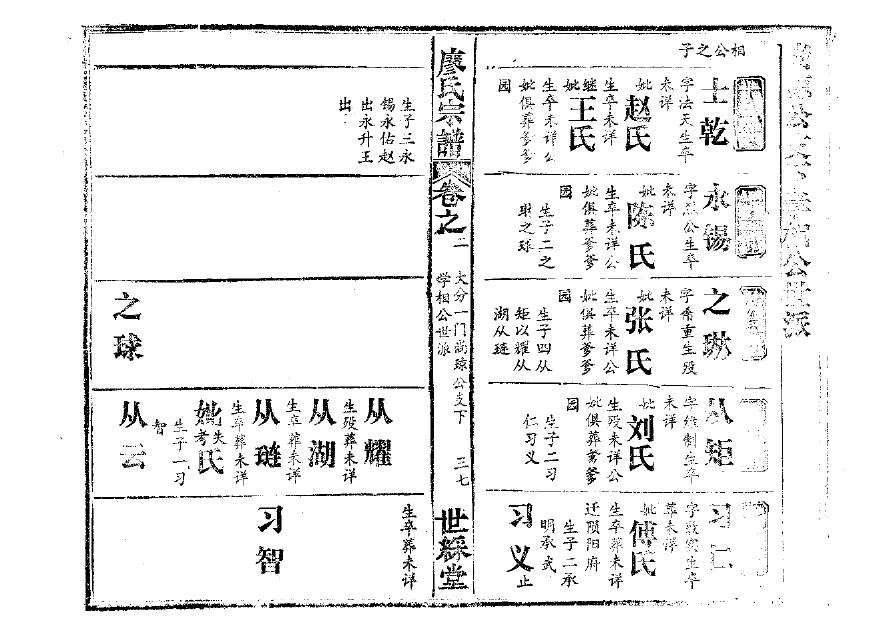 公世派
相公之子
士乾
字法天生卒
未详
妣赵氏
生卒未详
继妣王氏
生卒未详公
妣俱葬爹爹
园
永锡
字烈公生卒
未详
妣陈氏
生卒未详公
妣俱葬爹爹
园
生子二之
琳之球
之琳
字希重生殁
未详
妣张氏
生卒未详公
妣俱葬爹爹
园
生子四从
矩以耀从
湖从琏
从矩
字绘制生卒
未详
妣刘氏
生殁未详公
妣俱葬爹爹
园
生子二习
仁习义
习仁
字敦实生卒
葬未详
妣傅氏
生卒葬未详
迁陨阳府
生子二承
明承武
习义止
廖氏宗譜
卷之二
大分一门尚琼公支下
学相公世派
三七
世綵堂
生子三永
锡永佑赵
出永升王
出
之球
从耀
生殁葬未详
从湖
生卒葬未详
从琏
生卒葬未详
妣失考氏
生子一习
智
从云
生卒葬未详
习智